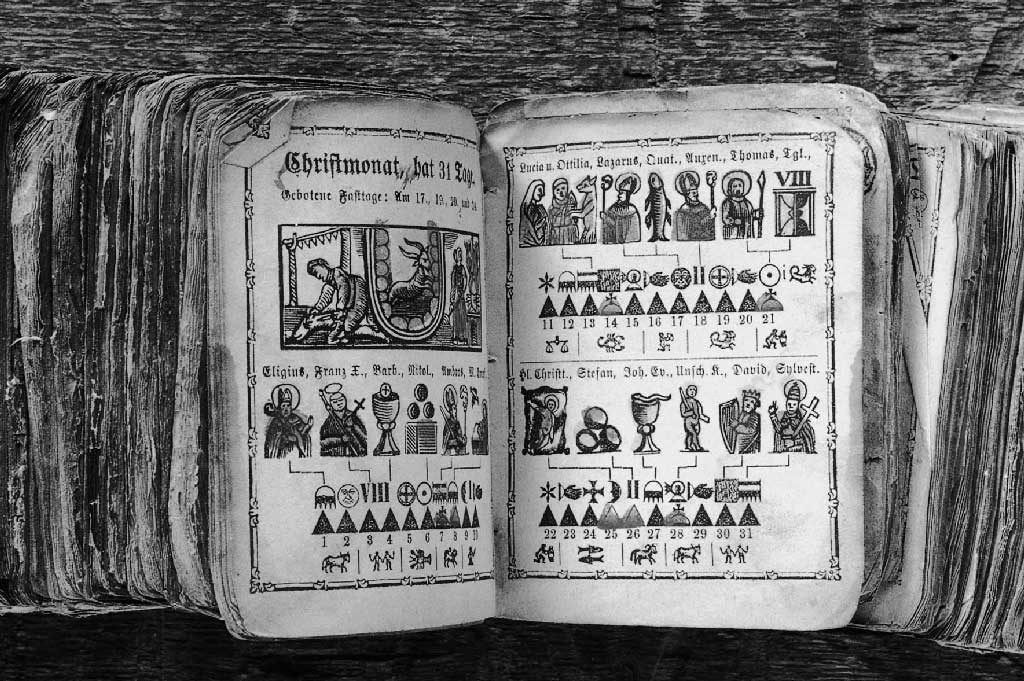 Christmonat, hat 31 Tage.
Gebotene Fasttage: Am 17., 19., 20. und 24.
Eligius, Franz X., Barb., Nikol., Ambros., M. Empf.
VIII
1 2 3 4 5 6 7 8 9 10
Lucia u. Ottilia, Lazarus, Quat., Auxen., Thomas, Tgl.,
VIII
11 12 13 14 15 16 17 18 19 20 21
Hl. Christt., Stefan, Joh. Ev., Unsch. K., David, Sylvest.
22 23 24 25 26 27 28 29 30 31